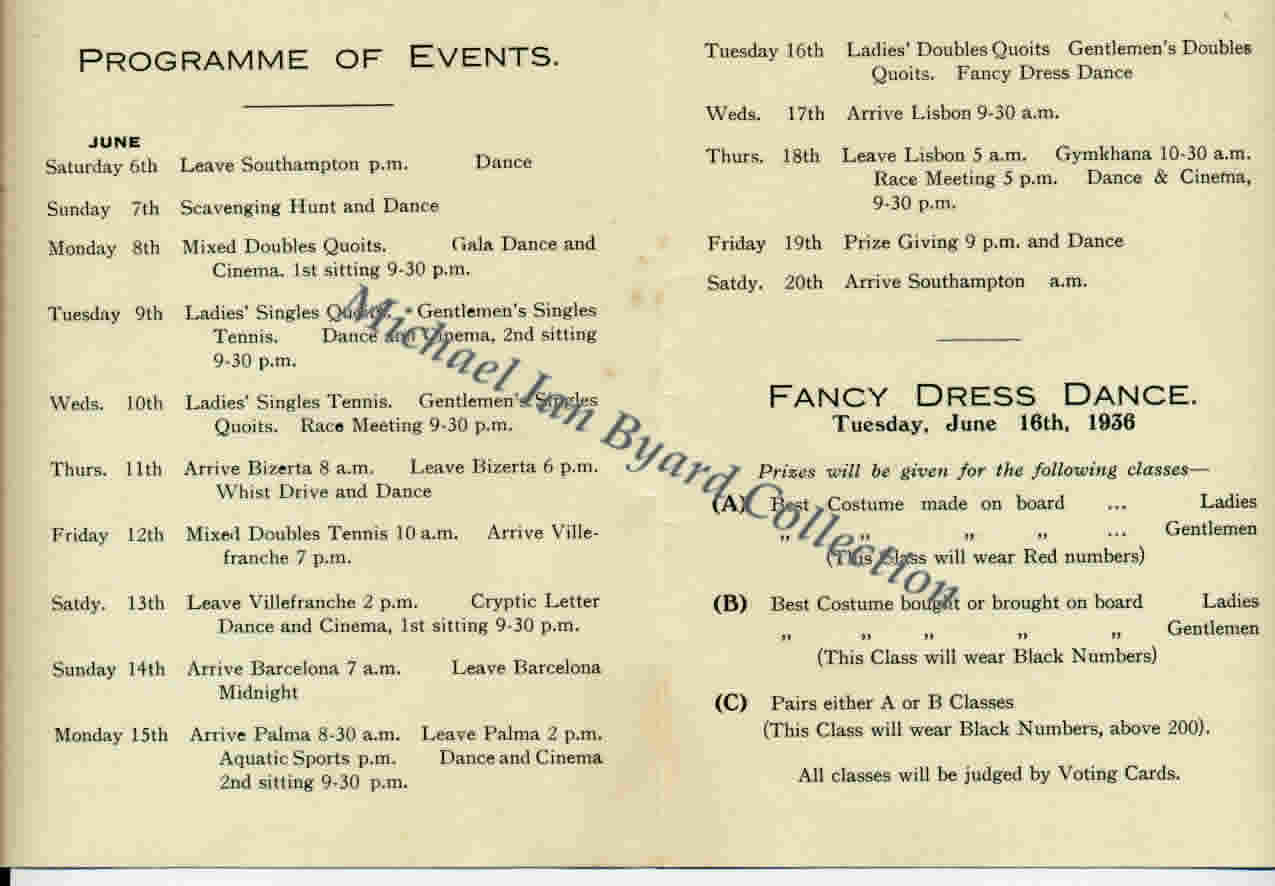 PROGRAMME OF EVENTS.
JUNE
Saturday 6th Leave Southampton p.m. Dance
Sunday 7th Scavenging Hunt and Dance
Monday 8th Mixed Doubles Quoits. Gala Dance and
Cinema. 1st sitting 9-30 p.m.
Tuesday 9th Ladies' Singles Quoits. Gentlemen's Singles
Tennis. Dance and Cinema, 2nd sitting
9-30 p.m.
Weds. 10th Ladies' Singles Tennis. Gentlemen's Singles
Quoits. Race Meeting 9-30 p.m.
Thurs. 11th Arrive Bizerta 8 a.m. Leave Bizerta 6 p.m.
Whist Drive and Dance
Friday 12th Mixed Doubles Tennis 10 a.m. Arrive Ville-
franche 7 p.m.
Satdy. 13th Leave Villefranche 2 p.m. Cryptic Letter
Dance and Cinema, 1st sitting 9-30 p.m.
Sunday 14th Arrive Barcelona 7 a.m. Leave Barcelona
Midnight
Monday 15th Arrive Palma 8-30 a.m. Leave Palma 2 p.m.
Aquatic Sports p.m. Dance and Cinema
2nd sitting 9-30 p.m.
Tuesday 16th Ladies' Doubles Quoits Gentlemen's Doubles
Quoits. Fancy Dress Dance
Weds. 17th Arrive Lisbon 9-30 a.m.
Thurs. 18th Leave Lisbon 5 a.m. Gymkhana 10-30 a.m.
Race Meeting 5 p.m. Dance & Cinema,
9-30 p.m.
Friday 19th Prize Giving 9 p.m. and Dance
Satdy. 20th Arrive Southampton a.m.
FANCY DRESS DANCE.
Tuesday, June 16th, 1936
Prizes will be given for the following classes—
(A) Best Costume made on board ... Ladies
„ „ „ „ ... Gentlemen
(This Class will wear Red numbers)
(B) Best Costume bought or brought on board Ladies
„ „ „ „ „ Gentlemen
(This Class will wear Black Numbers)
(C) Pairs either A or B Classes
(This Class will wear Black Numbers, above 200).
All classes will be judged by Voting Cards.
Michael Ian Byard Collection